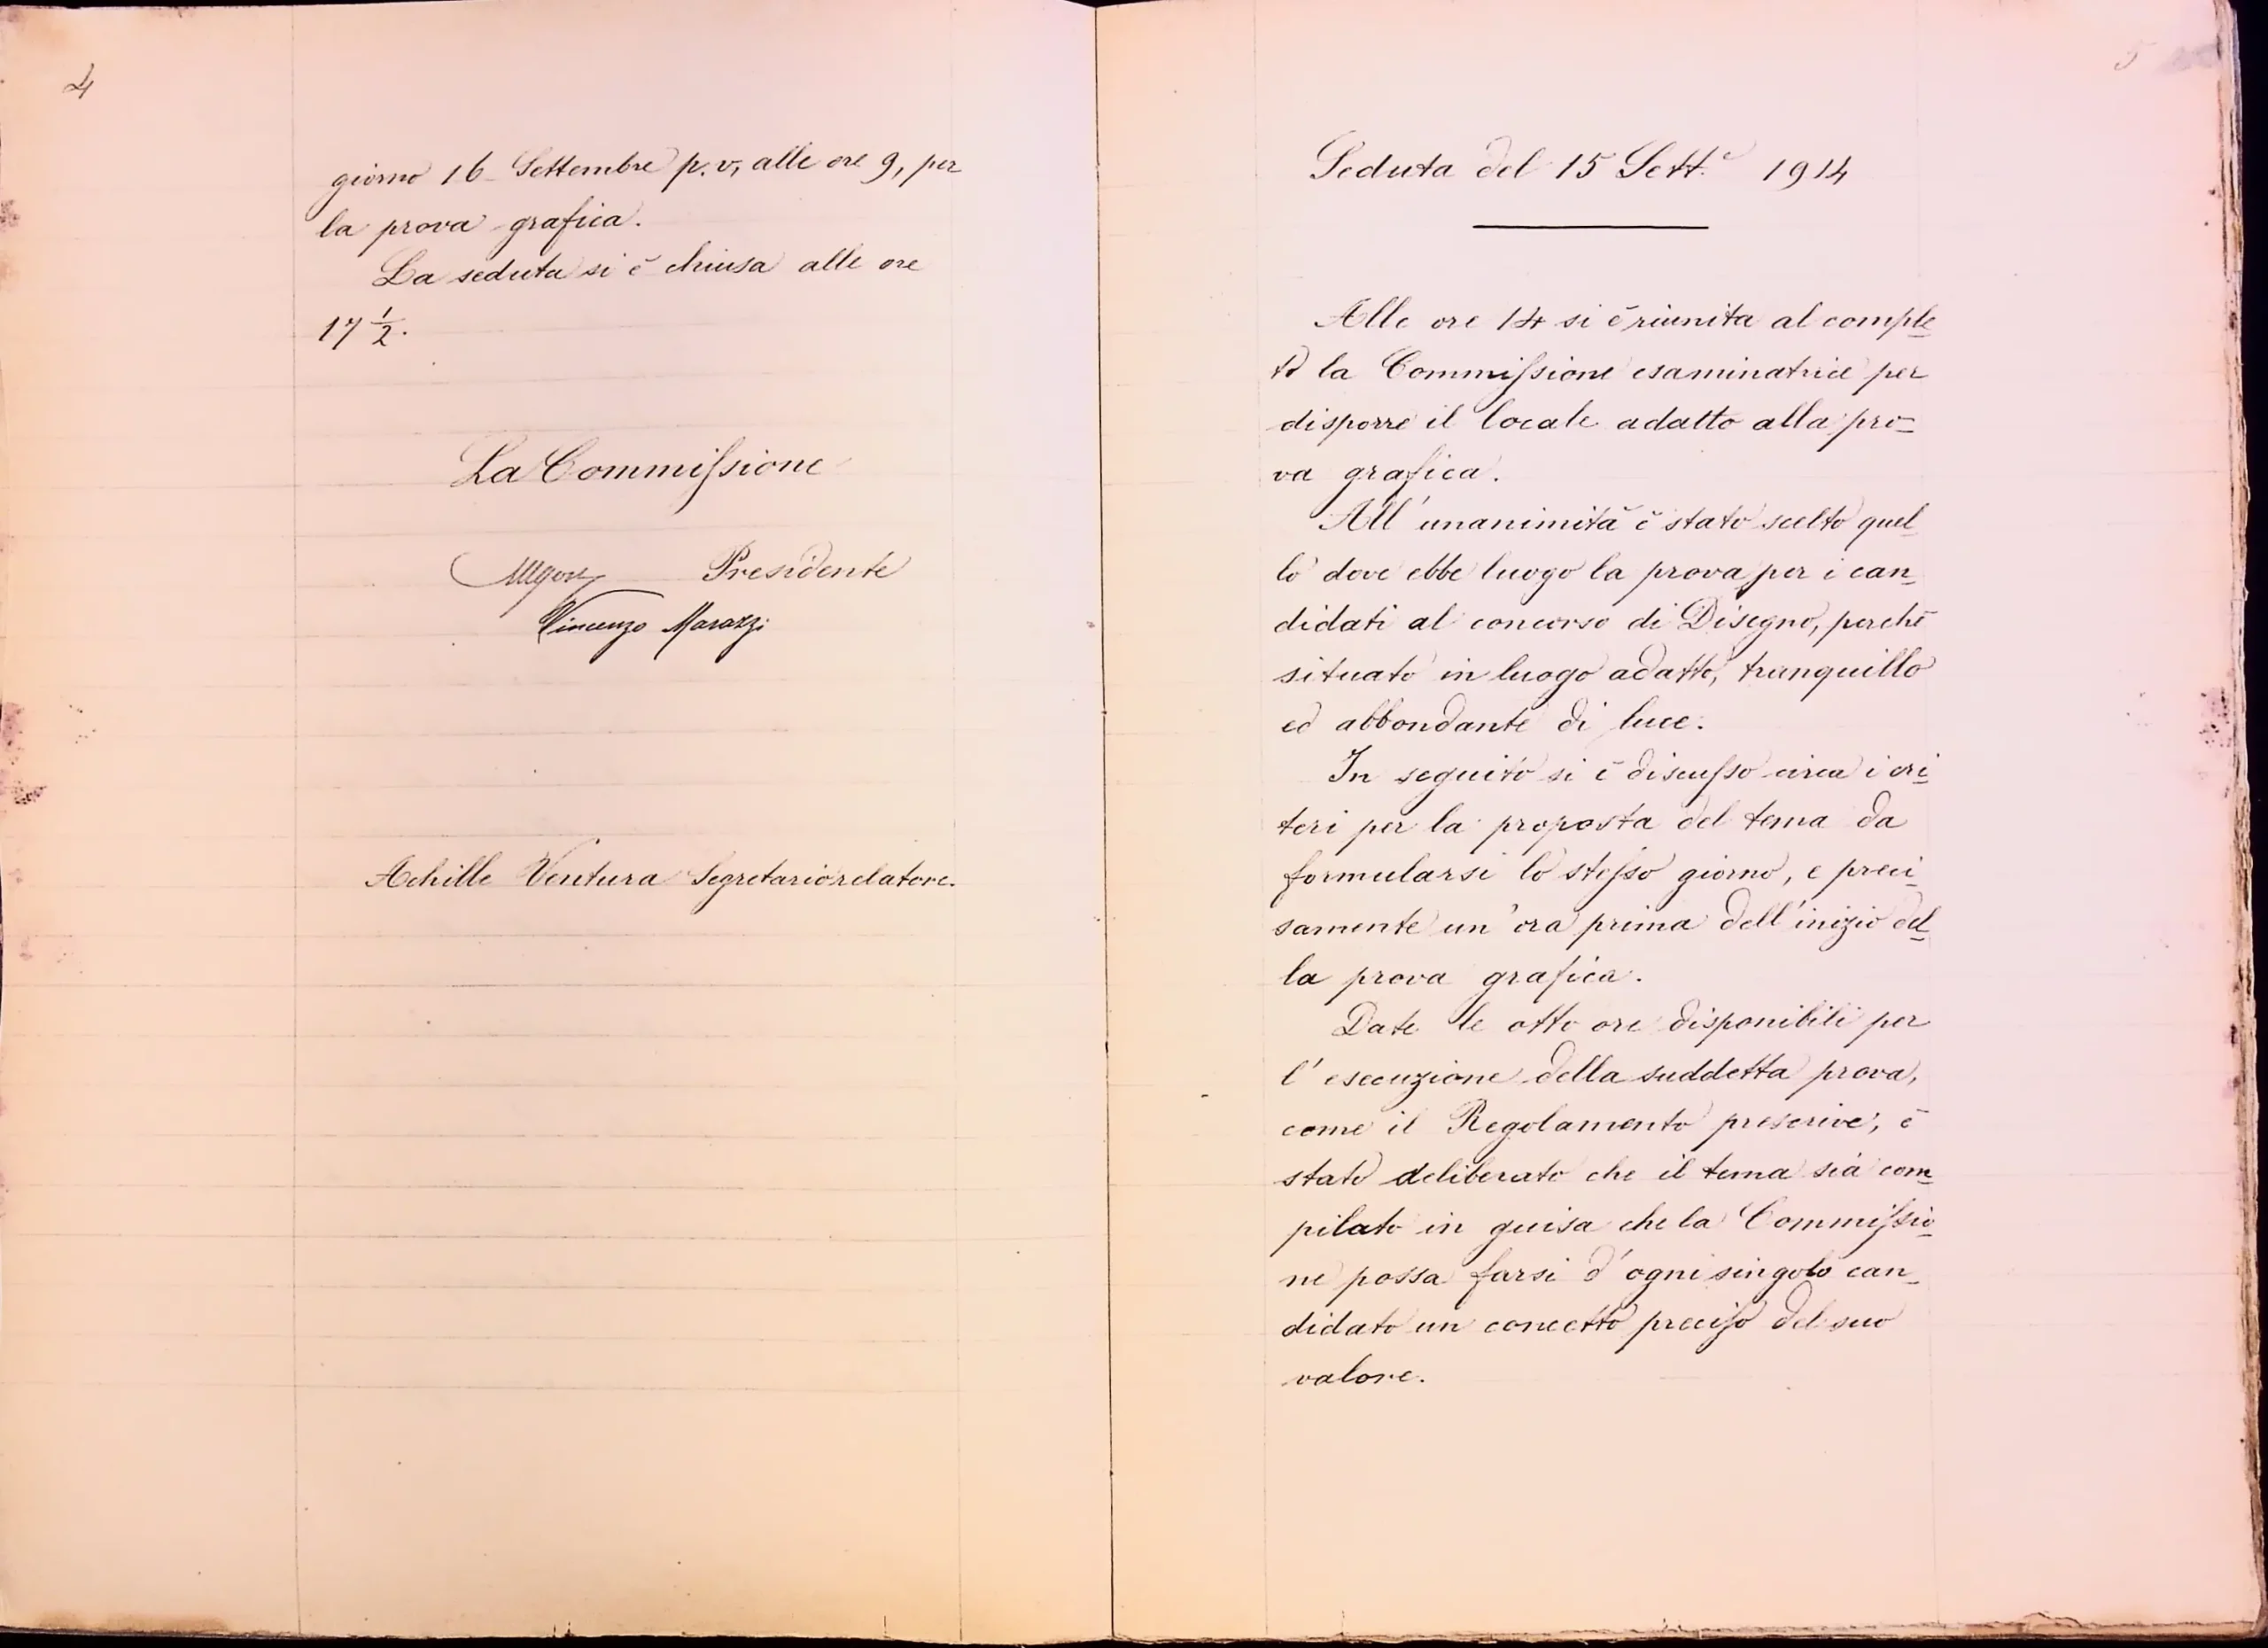 4
giorno 16 Settembre p. v, alle ore 9, per
la prova grafica.
La seduta si è chiusa alle ore
17 1/2.
La Commissione
Presidente
Vincenzo Marazzi
Achille Ventura Segretario relatore.
5
Seduta del 15 Sett.e 1914
Alle ore 14 si è riunita al comple
to la Commissione esaminatrice per
disporre il locale adatto alla pro-
va grafica.
All'unanimità è stato scelto quel
lo dove ebbe luogo la prova per i can
didati al concorso di Disegno, perchè
situato in luogo adatto, tranquillo
ed abbondante di luce.
In seguito si è discusso circa i cri
teri per la proposta del tema da
formularsi lo stesso giorno, e preci
samente un'ora prima dell'inizio del
la prova grafica.
Date le otto ore disponibili per
l'esecuzione della suddetta prova,
come il Regolamento prescrive, è
stato deliberato che il tema sia com
pilato in guisa che la Commissio
ne possa farsi d'ogni singolo can
didato un concetto preciso del suo
valore.